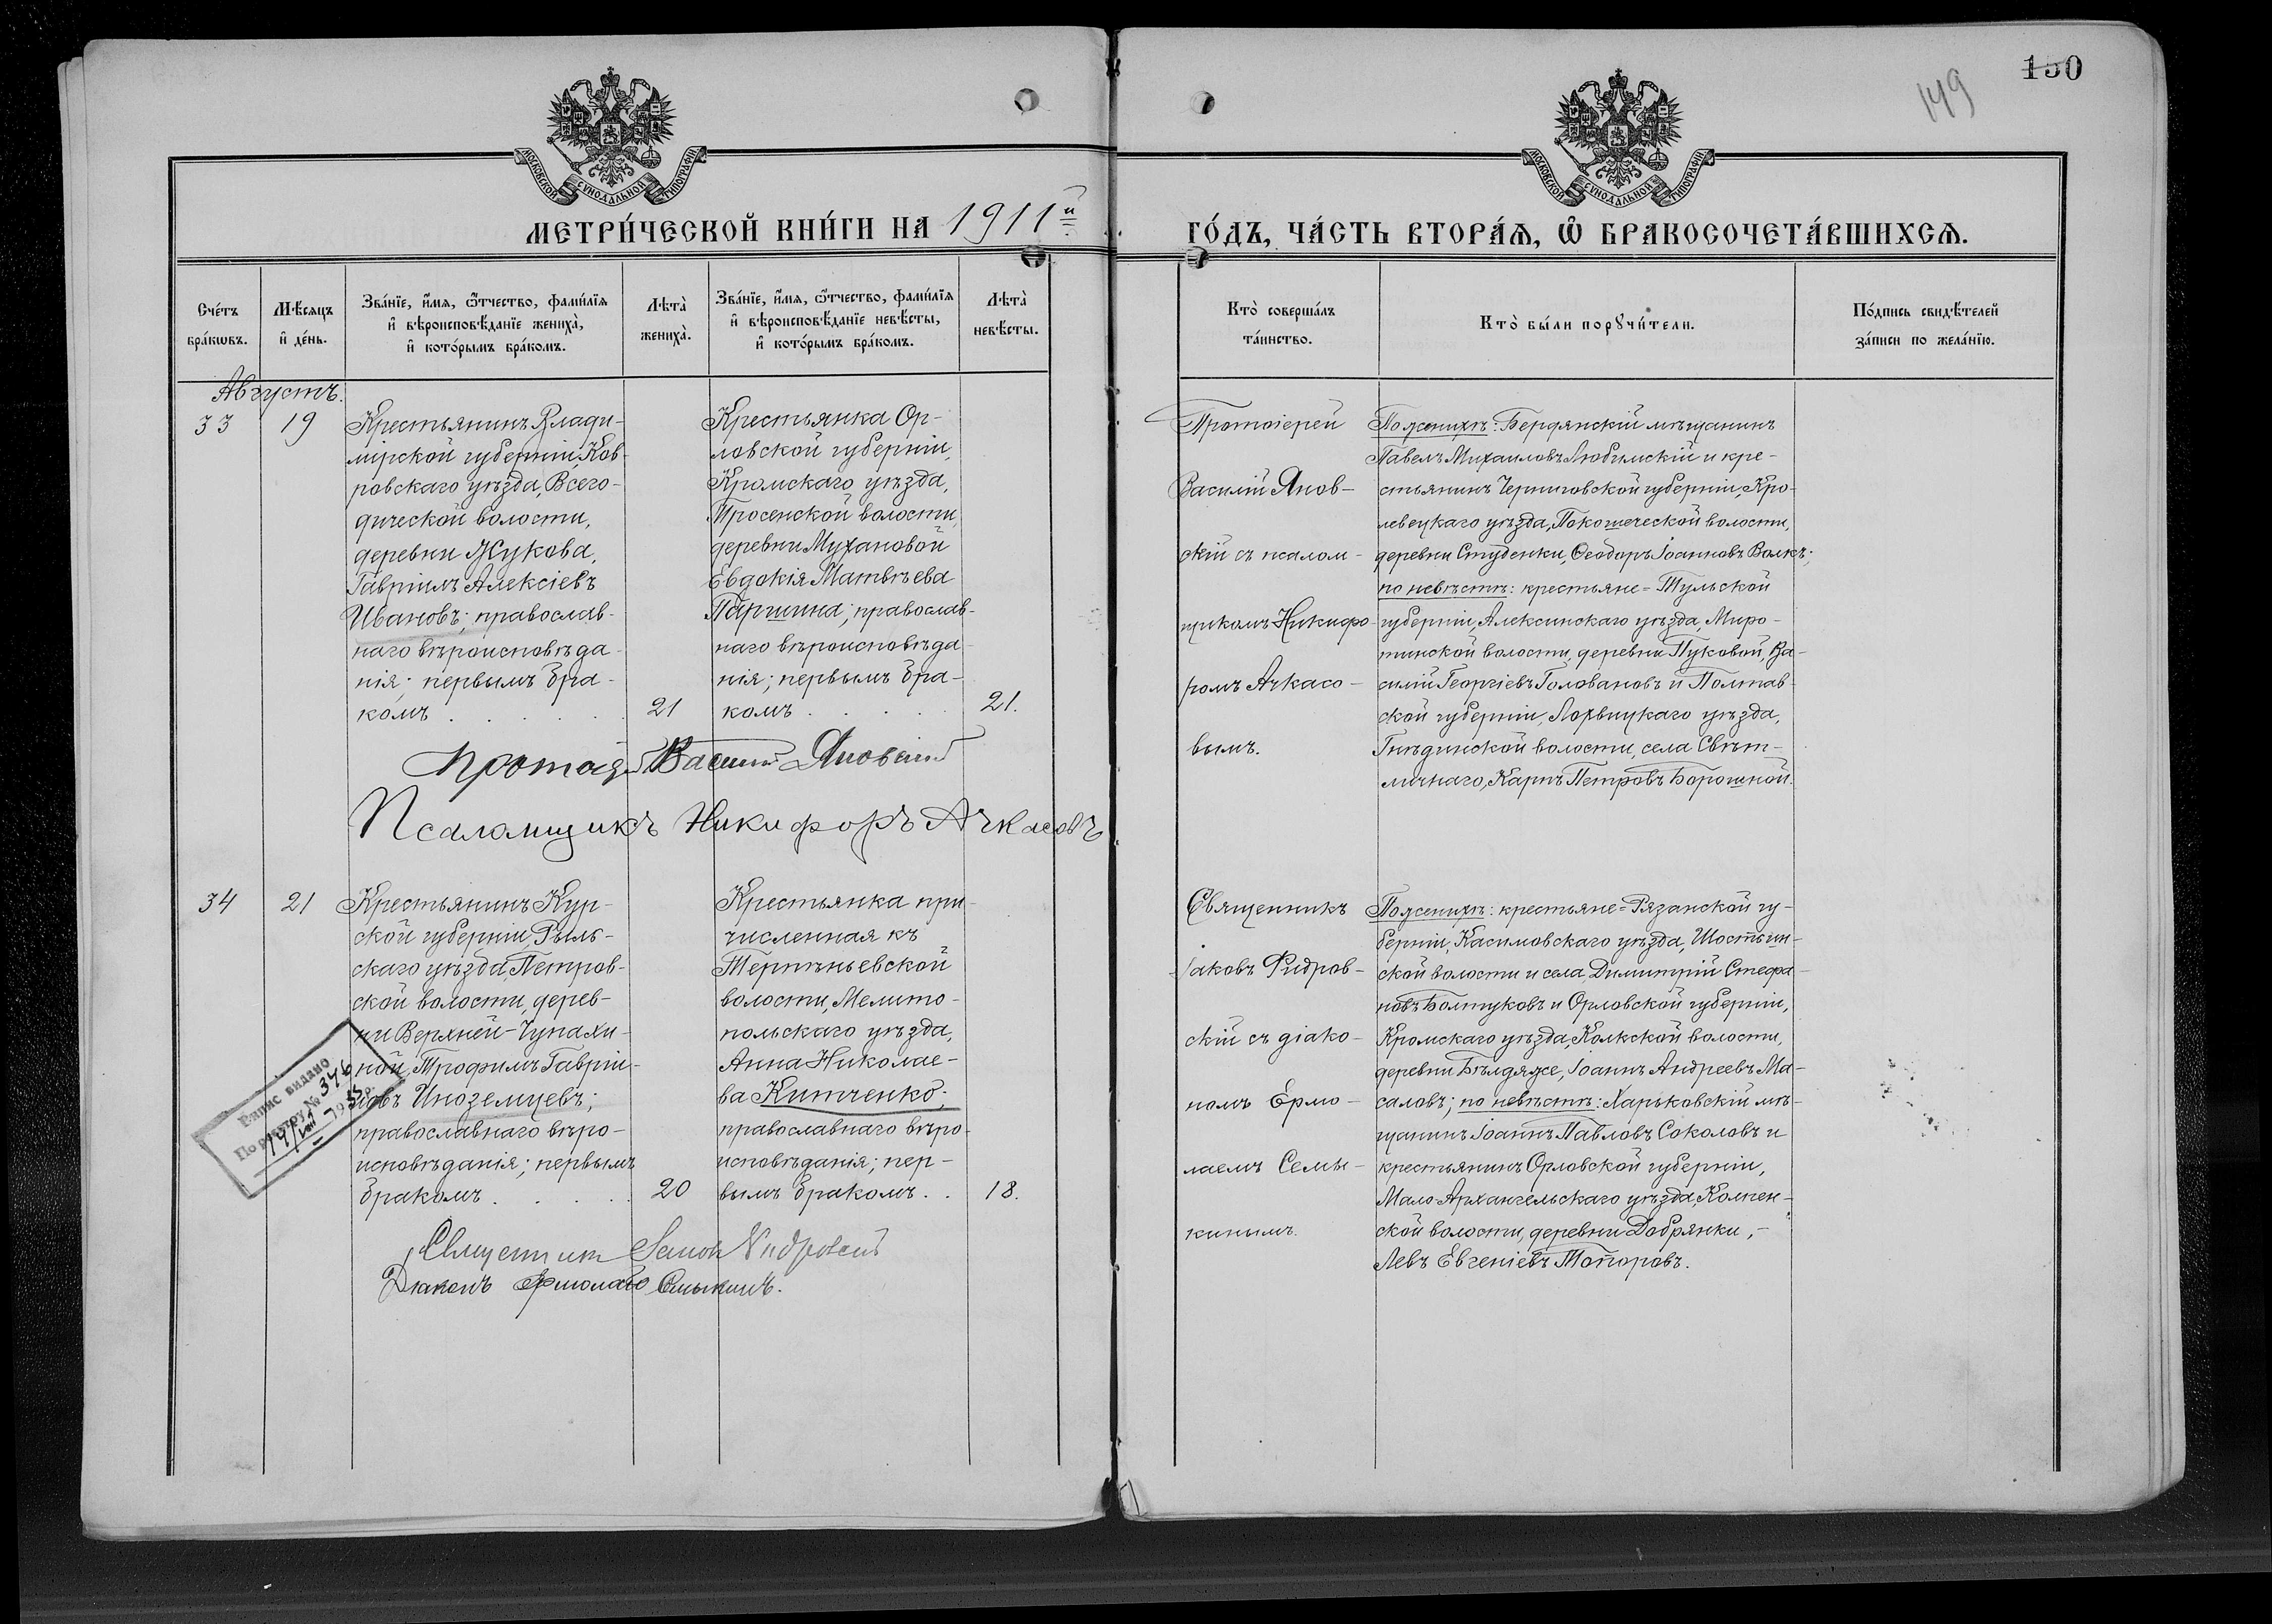 150
149
МОСКОВСКОЙ СѴНОДАЛЬНОЙ ТИПОГРАФІИ
МОСКОВСКОЙ СѴНОДАЛЬНОЙ ТИПОГРАФІИ
МЕТРИ́ЧЕСКОЙ КНИ́ГИ НА 1911й
ГО́ДЪ, ЧА́СТЬ ВТОРА́Ѧ, Ѡ҆ БРАКОСОЧЕТА́ВШИХСѦ.
Сче́тъ
бра́кѡвъ.
Мѣ́сяцъ
и҆ де́нь.
Зва́нїе, и҆́мя, ѻ҆́тчество, фами́лїя
и҆ вѣроисповѣ́данїе жениха̀,
и҆ кото́рымъ бра́комъ.
Лѣта̀
жениха̀.
Зва́нїе, и҆́мя, ѻ҆́тчество, фами́лїя
и҆ вѣроисповѣ́данїе невѣ́сты,
и҆ кото́рымъ бра́комъ.
Лѣта̀
невѣ́сты.
Кто̀ соверша́лъ
та́инство.
Кто̀ бы́ли порꙋчи́тели.
По́дпись свидѣ́телей
за́писи по жела́нїю.
Августъ.
33
19
Крестьянинъ Влади-
мірской губерніи, Ков-
ровскаго уѣзда, Всего-
дической волости,
деревни Жукова,
Гавріилъ Алексіевъ
Ивановъ; православ-
наго вѣроисповѣда-
нія; первымъ бра-
комъ . . . . . .
21
Крестьянка Ор-
ловской губерніи,
Кромскаго уѣзда,
Тросенской волости,
деревни Мухановой
Евдокія Матвѣева
Паршина; православ-
наго вѣроисповѣда-
нія; первымъ бра-
комъ . . . . .
21.
Протоіерей
Василій Янов-
скій съ псалом-
щикомъ Никифо-
ромъ Ачкасо-
вымъ.
По женихѣ: Бердянскій мѣщанинъ
Павелъ Михаиловъ Любимскій и кре-
стьянинъ Черниговской губерніи, Кро-
левецкаго уѣзда, Покошической волости,
деревни Студенки, Ѳеодоръ Іоанновъ Волкъ;
по невѣстѣ: крестьяне = Тульской
губерніи, Алексинскаго уѣзда, Миро-
тинской волости, деревни Пуковой, Ва-
силій Георгіевъ Головановъ и Полтав-
ской губерніи, Лохвицкаго уѣзда,
Гнѣдинской волости, села Свѣт-
личнаго, Карпъ Петровъ Борошной.
Василій Яновскій
Псаломщикъ Никифоръ Ачкасовъ
34
21
Крестьянинъ Кур-
ской губерніи, Рыль-
скаго уѣзда, Петров-
ской волости, дерев-
ни Верхней-Чупахи-
ной, Трофимъ Гавріи-
ловъ Иноземцевъ;
православнаго вѣро-
исповѣданія; первымъ
бракомъ . . . . .
20
Крестьянка при-
численная къ
Терпѣньевской
волости, Мелито-
польскаго уѣзда,
Анна Николае-
ва Китченко;
православнаго вѣро-
исповѣданія; пер-
вымъ бракомъ . .
18.
Священникъ
Іаковъ Фидров-
скій съ діако-
номъ Ермо-
лаемъ Семы-
кинымъ.
По женихѣ: крестьяне = Рязанской гу-
берніи, Касимовскаго уѣзда, Шостьин-
ской волости и села, Димитрій Стефа-
новъ Болтуковъ и Орловской губерніи,
Кромскаго уѣзда, Колкской волости,
деревни Бѣлдяже, Іоаннъ Андреевъ Ма-
саловъ; по невѣстѣ: Харьковскій мѣ-
щанинъ Іоаннъ Павловъ Соколовъ и
крестьянинъ Орловской губерніи,
Мало-Архангельскаго уѣзда, Колпен-
ской волости, деревни Добрянки, -
Левъ Евгеніевъ Топоровъ.
видано
По № 376